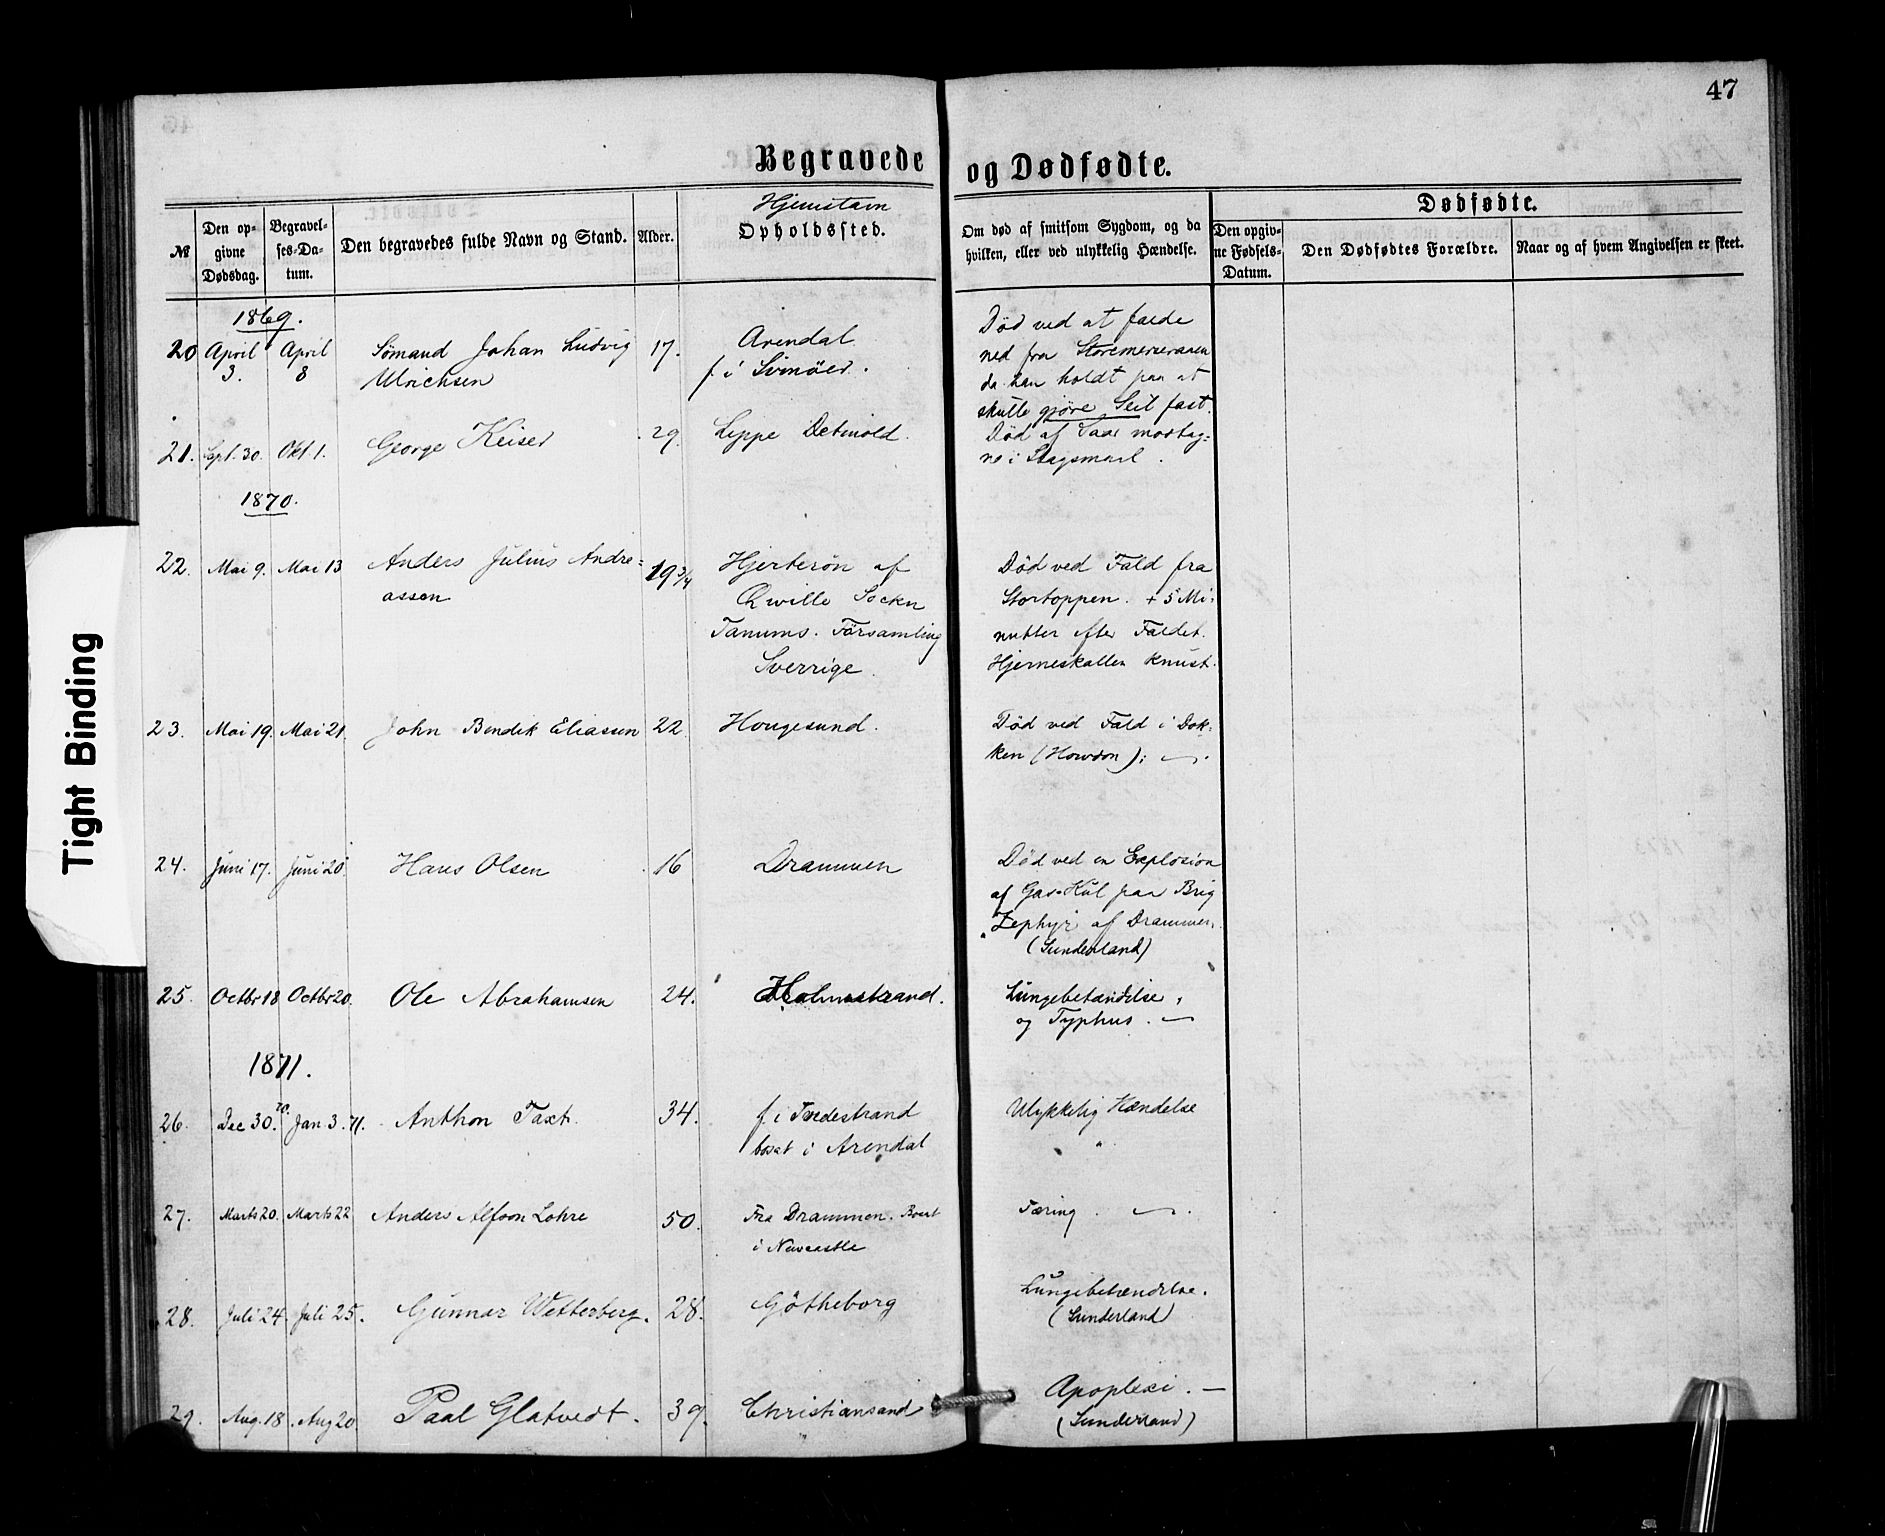 47
Begravede og Dødfødte.
№
Den opgivne Dødsdag.
Begravelses-Datum.
Den begravedes fulde Navn og Stand.
Alder.
Hjemstavn
Opholdssted.
Om død af smitsom Sygdom, og da
hvilken, eller ved ulykkelig Hændelse.
Dødfødte.
Den opgivne Fødsels-Datum.
Den Dødfødtes Forældre.
Naar og af hvem Angivelsen er skeet.
1869.
20 April 3. April 8 Sømand Johan Ludvig
Ulrichsen
17.
Arendal
f. i
Død ved at falde
ned fra
da han holdt paa at
skulle gjøre Seil fast.
21. Sept. 30. Okt. 1. George Keiser 29 Lippe Detmold.
Død af Saar modtag-
ne i Slagsmaal.
1870.
22. Mai 9. Mai 13 Anders Julius Andre-
assen
19 3/4
Hjerterön af
Qwille Sockn
Tanums. Församling
Sverrige.
Død ved Fald fra
Stortoppen. + 5 Mi-
nutter efter Faldet.
Hjerneskallen knust.
23. Mai 19. Mai 21. John Bendik Eliassen 22 Hougesund.
Død ved Fald i Dok-
ken (Howdon);
24. Juni 17. Juni 20. Hans Olsen 16 Drammen
Død ved en Explosion
af Gas-Kul paa Brig
Zephyr af Drammen.
(Sunderland)
25. Octbr 18 Octbr 20. Ole Abrahamsen 24. Holmestrand.
Lungebetændelse,
og Typhus.
1871.
26. Dec 30. 70. Jan 3. 71. Anthon Taxt. 34. f. i Tvedestrand
bosat i Arendal
Ulykkelig Hændelse
27. Marts 20. Marts 22 Anders Alfson Lohre 50. Fra Drammen. Boset
i Newcastle
Tæring.
28. Juli 24. Juli 25. Gunnar Wetterberg. 28. Götheborg
Lungebetændelse.
(Sunderland)
29. Aug. 18. Aug 20 Paal Glatvedt. 39. Christiansand
Apoplexi. —
(Sunderland)
Tight Binding